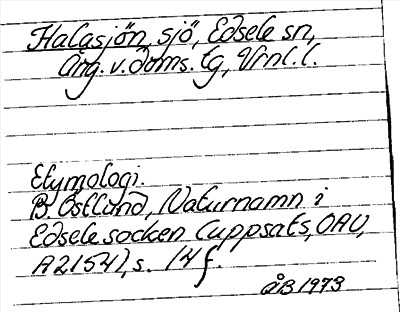 Halasjön, sjö, Edsele sn,
Ång. v. doms. tg, Vrnl. l.
Etymologi.
B. Östlund, Naturnamn i
Edsele socken (uppsats, OAU,
A2154), s. 14 f.
ÅB 1973